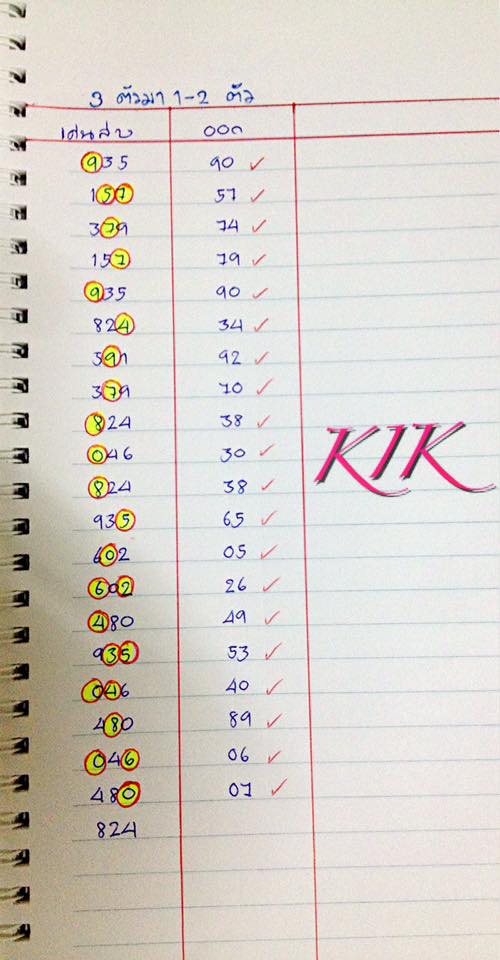 3 ตัวมา 1-2 ตัว
เด่นล่าง ออก
935 90 ✓
157 57 ✓
379 74 ✓
157 79 ✓
935 90 ✓
824 34 ✓
391 92 ✓
379 70 ✓
824 38 ✓
046 30 ✓
824 38 ✓
935 65 ✓
602 05 ✓
602 26 ✓
480 49 ✓
935 53 ✓
046 40 ✓
480 89 ✓
046 06 ✓
480 07 ✓
824
KIK